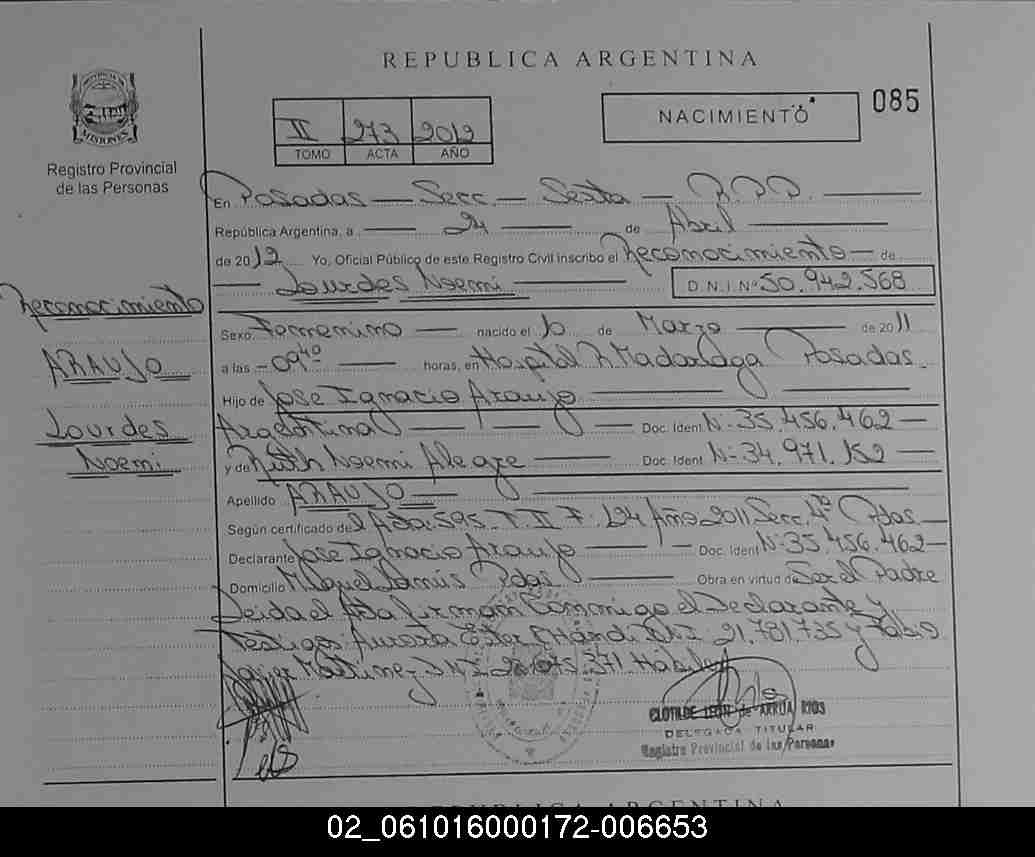 REPUBLICA ARGENTINA
PROVINCIA
MISIONES
Registro Provincial
de las Personas
II 273 2012
TOMO ACTA AÑO
NACIMIENTO
085
En Posadas — Secc. — Sexta —
República Argentina, a — 24 — de Abril —
de 2012 Yo, Oficial Público de este Registro Civil inscribo el Reconocimiento — de
— Lourdes Noemi — D.N.I Nº 50.942.568
Reconocimiento
ARAUJO
Lourdes
Noemi
Sexo Femenino — nacido el 10 de Marzo — de 2011
a las — 09 40 — horas, en Hospital R Madariaga Posadas
Hijo de Jose Ignacio Araujo —
Argentina — Doc. Ident. Nº 35.456.462 —
y de Ruth Noemi Alegre — Doc. Ident. Nº 34.971.152 —
Apellido ARAUJO —
Según certificado del Acta: 595 T. II F. 124 Año 2011 Secc. 4º Pdas —
Declarante Jose Ignacio Araujo — Doc. Ident. Nº 35.456.462 —
Domicilio Miguel Lanús Pdas — Obra en virtud de Ser el Padre
Leida el Acta firman Conmigo el Declarante y
Testigos: Ester DNI: 21.781.735 y Fabio
Javier Martinez DNI Hábiles
CLOTILDE LEON de ARRUA RIOS
DELEGADA TITULAR
Registro Provincial de las Personas
REPUBLICA ARGENTINA
02_061016000172-006653